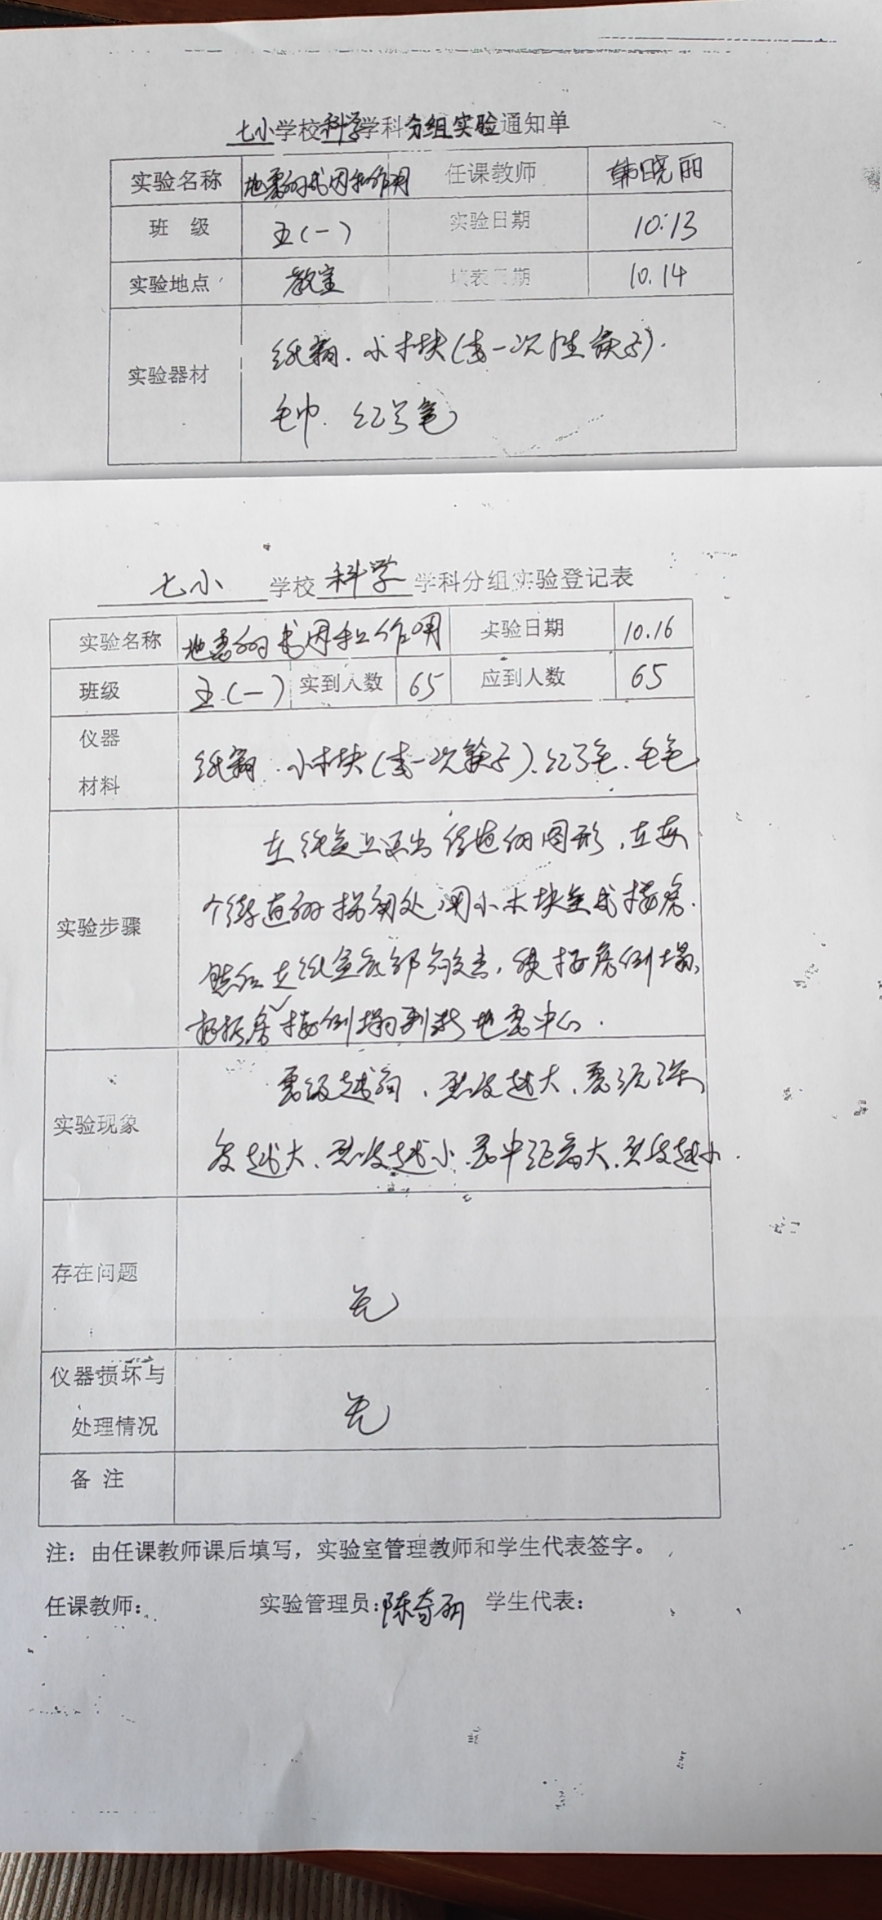 七小学校科学学科分组实验通知单
实验名称 地震的成因和作用 任课教师 韩晓丽
班 级 五(一) 实验日期 10.13
实验地点 教室 填表日期 10.14
实验器材 纸箱、小木块(或一次性筷子)、
毛巾、红弓笔
七小 学校 科学 学科分组实验登记表
实验名称 地震的成因和作用 实验日期 10.16
班级 五(一) 实到人数 65 应到人数 65
仪器
材料
纸箱、小木块(或一次筷子)、
实验步骤
在纸盒上画出街道的图形,在每
个街道的拐角处用小木块叠成楼房.
然后在纸盒底部敲击,使楼房倒塌,
倒塌判断地震中心.
实验现象
震级越高、烈度越大、震源深
度越大、烈度越小、震中距离大、烈度越小.
存在问题
无
仪器损坏与
处理情况
无
备 注
注:由任课教师课后填写,实验室管理教师和学生代表签字。
任课教师: 实验管理员:陈奇 学生代表: